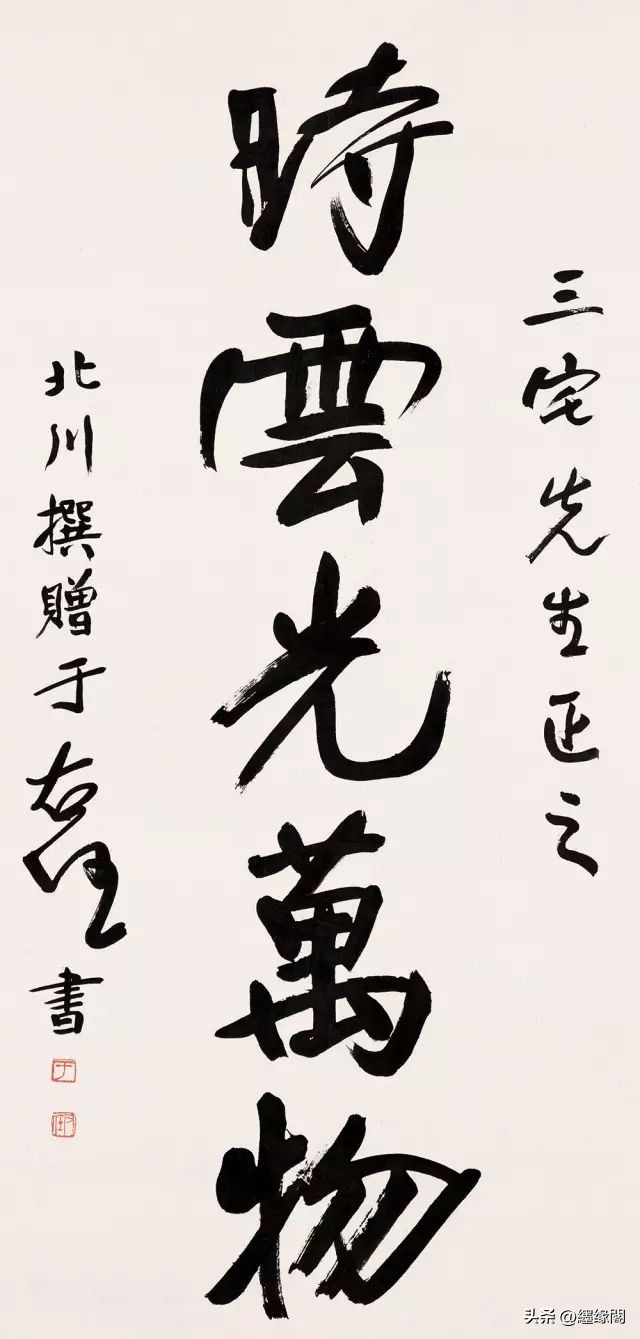 三宅先生正之
時雲光萬物
北川撰贈于右任書
于
头条 @纏缘閣